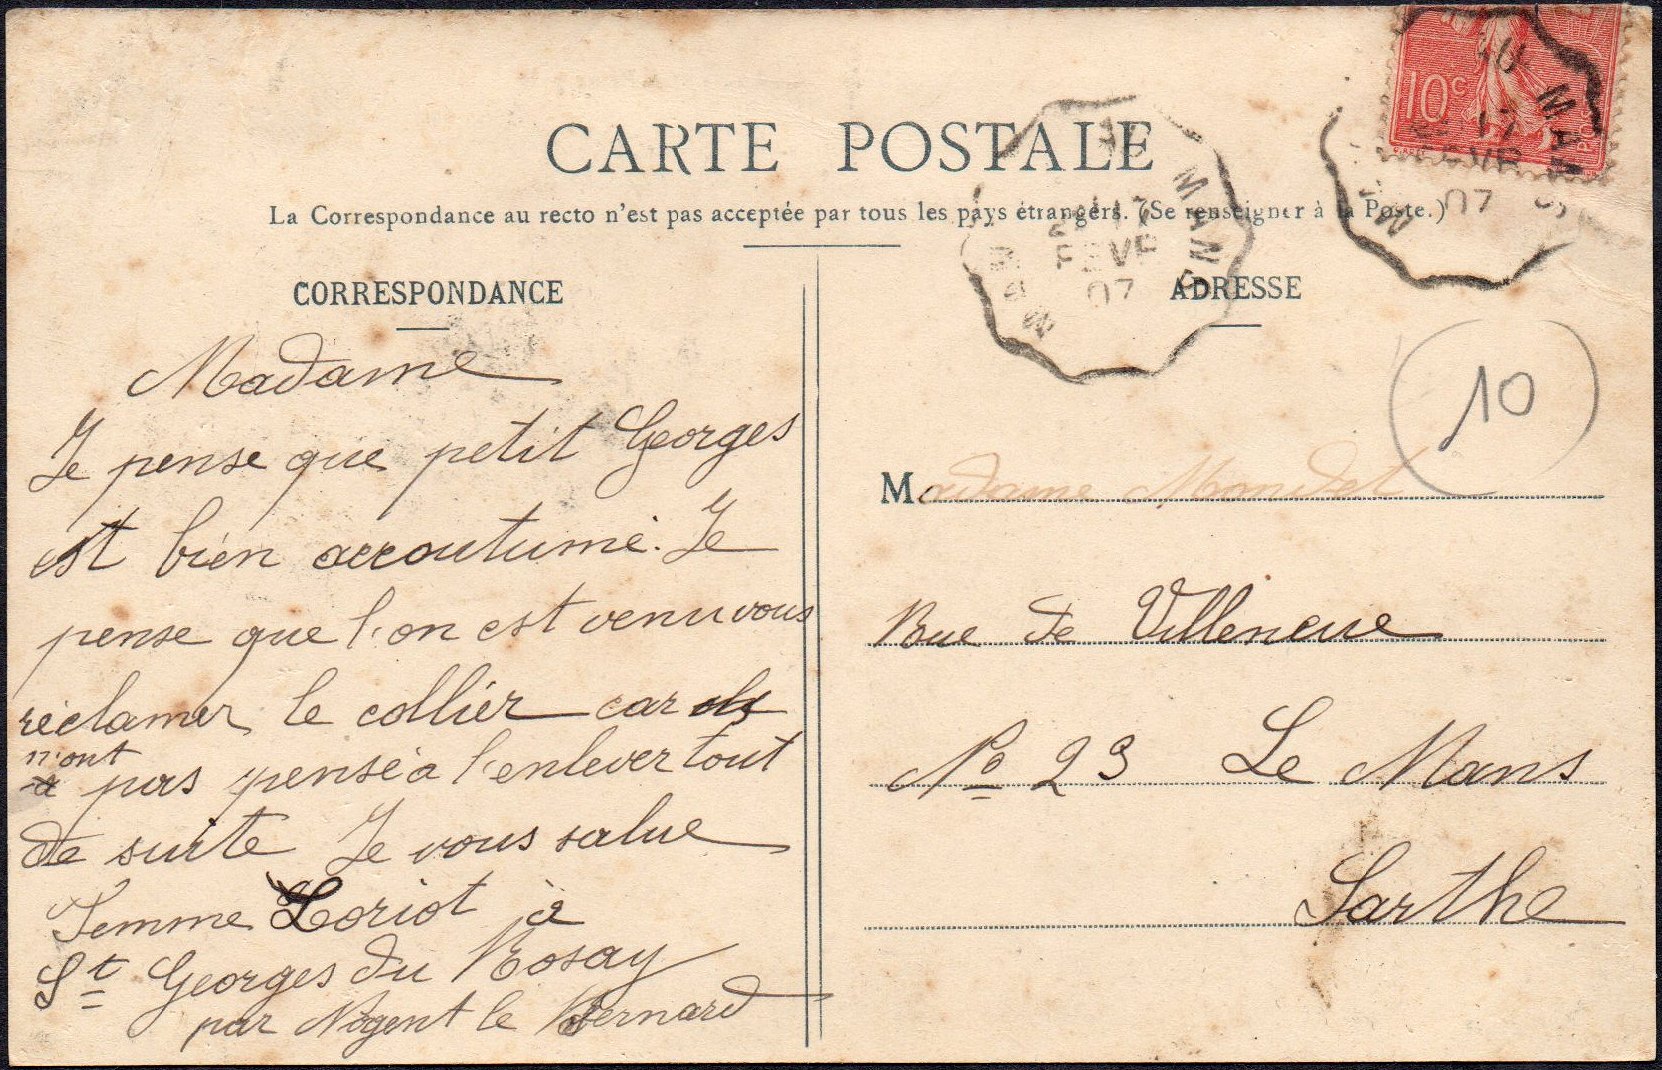 CARTE POSTALE
La Correspondance au recto n'est pas acceptée par tous les pays étrangers. (Se renseigner à la Poste.)
CORRESPONDANCE
Madame
Je pense que petit Georges
est bien accoutumé. Je
pense que l'on est venu vous
réclamer le collier car
n'ont
pas pensé a l'enlever tout
de suite Je vous salue
Femme Loriot à
St Georges du Rosay
par Nogent le Bernard
10c
17
FEVR
07
MANS
17
FEVR
07
MANS
ADRESSE
10
Madame Mandet
Rue de Villeneuve
No 23 Le Mans
Sarthe